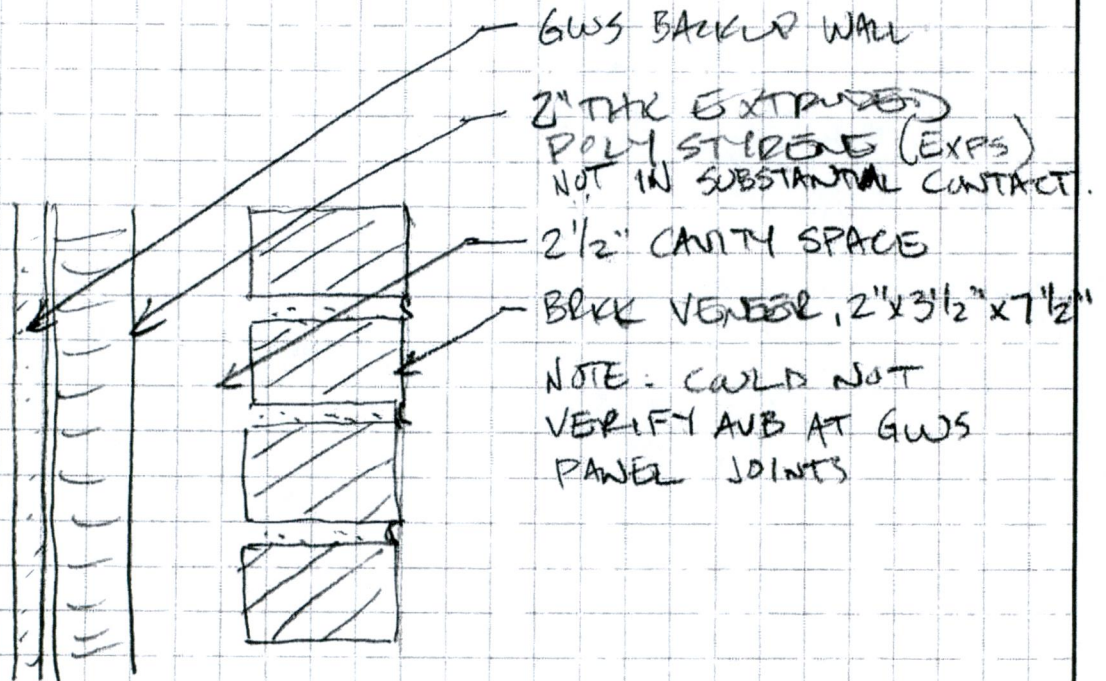 GWS BACKUP WALL
2" THK EXTRUDED
POLYSTYRENE (EXPS)
NOT IN SUBSTANTIAL CONTACT.
2 1/2" CAVITY SPACE
BRICK VENEER, 2" x 3 1/2" x 7 1/2"
NOTE: COULD NOT
VERIFY AVB AT GWS
PANEL JOINTS